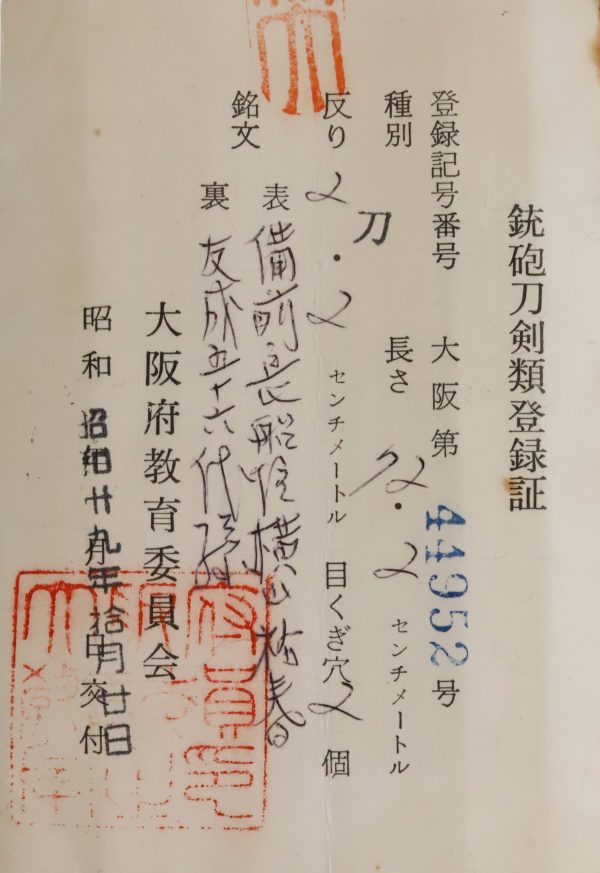 銃砲刀剣類登録証
登録記号番号 大阪第 44952 号
種別 刀 長さ 72・2 センチメートル
反り 2・2 センチメートル 目くぎ穴 2 個
銘文 表 備前長船住横山祐春
裏 友成五十六代孫
大阪府教育委員会
昭和 昭和廿九年拾月廿日交付